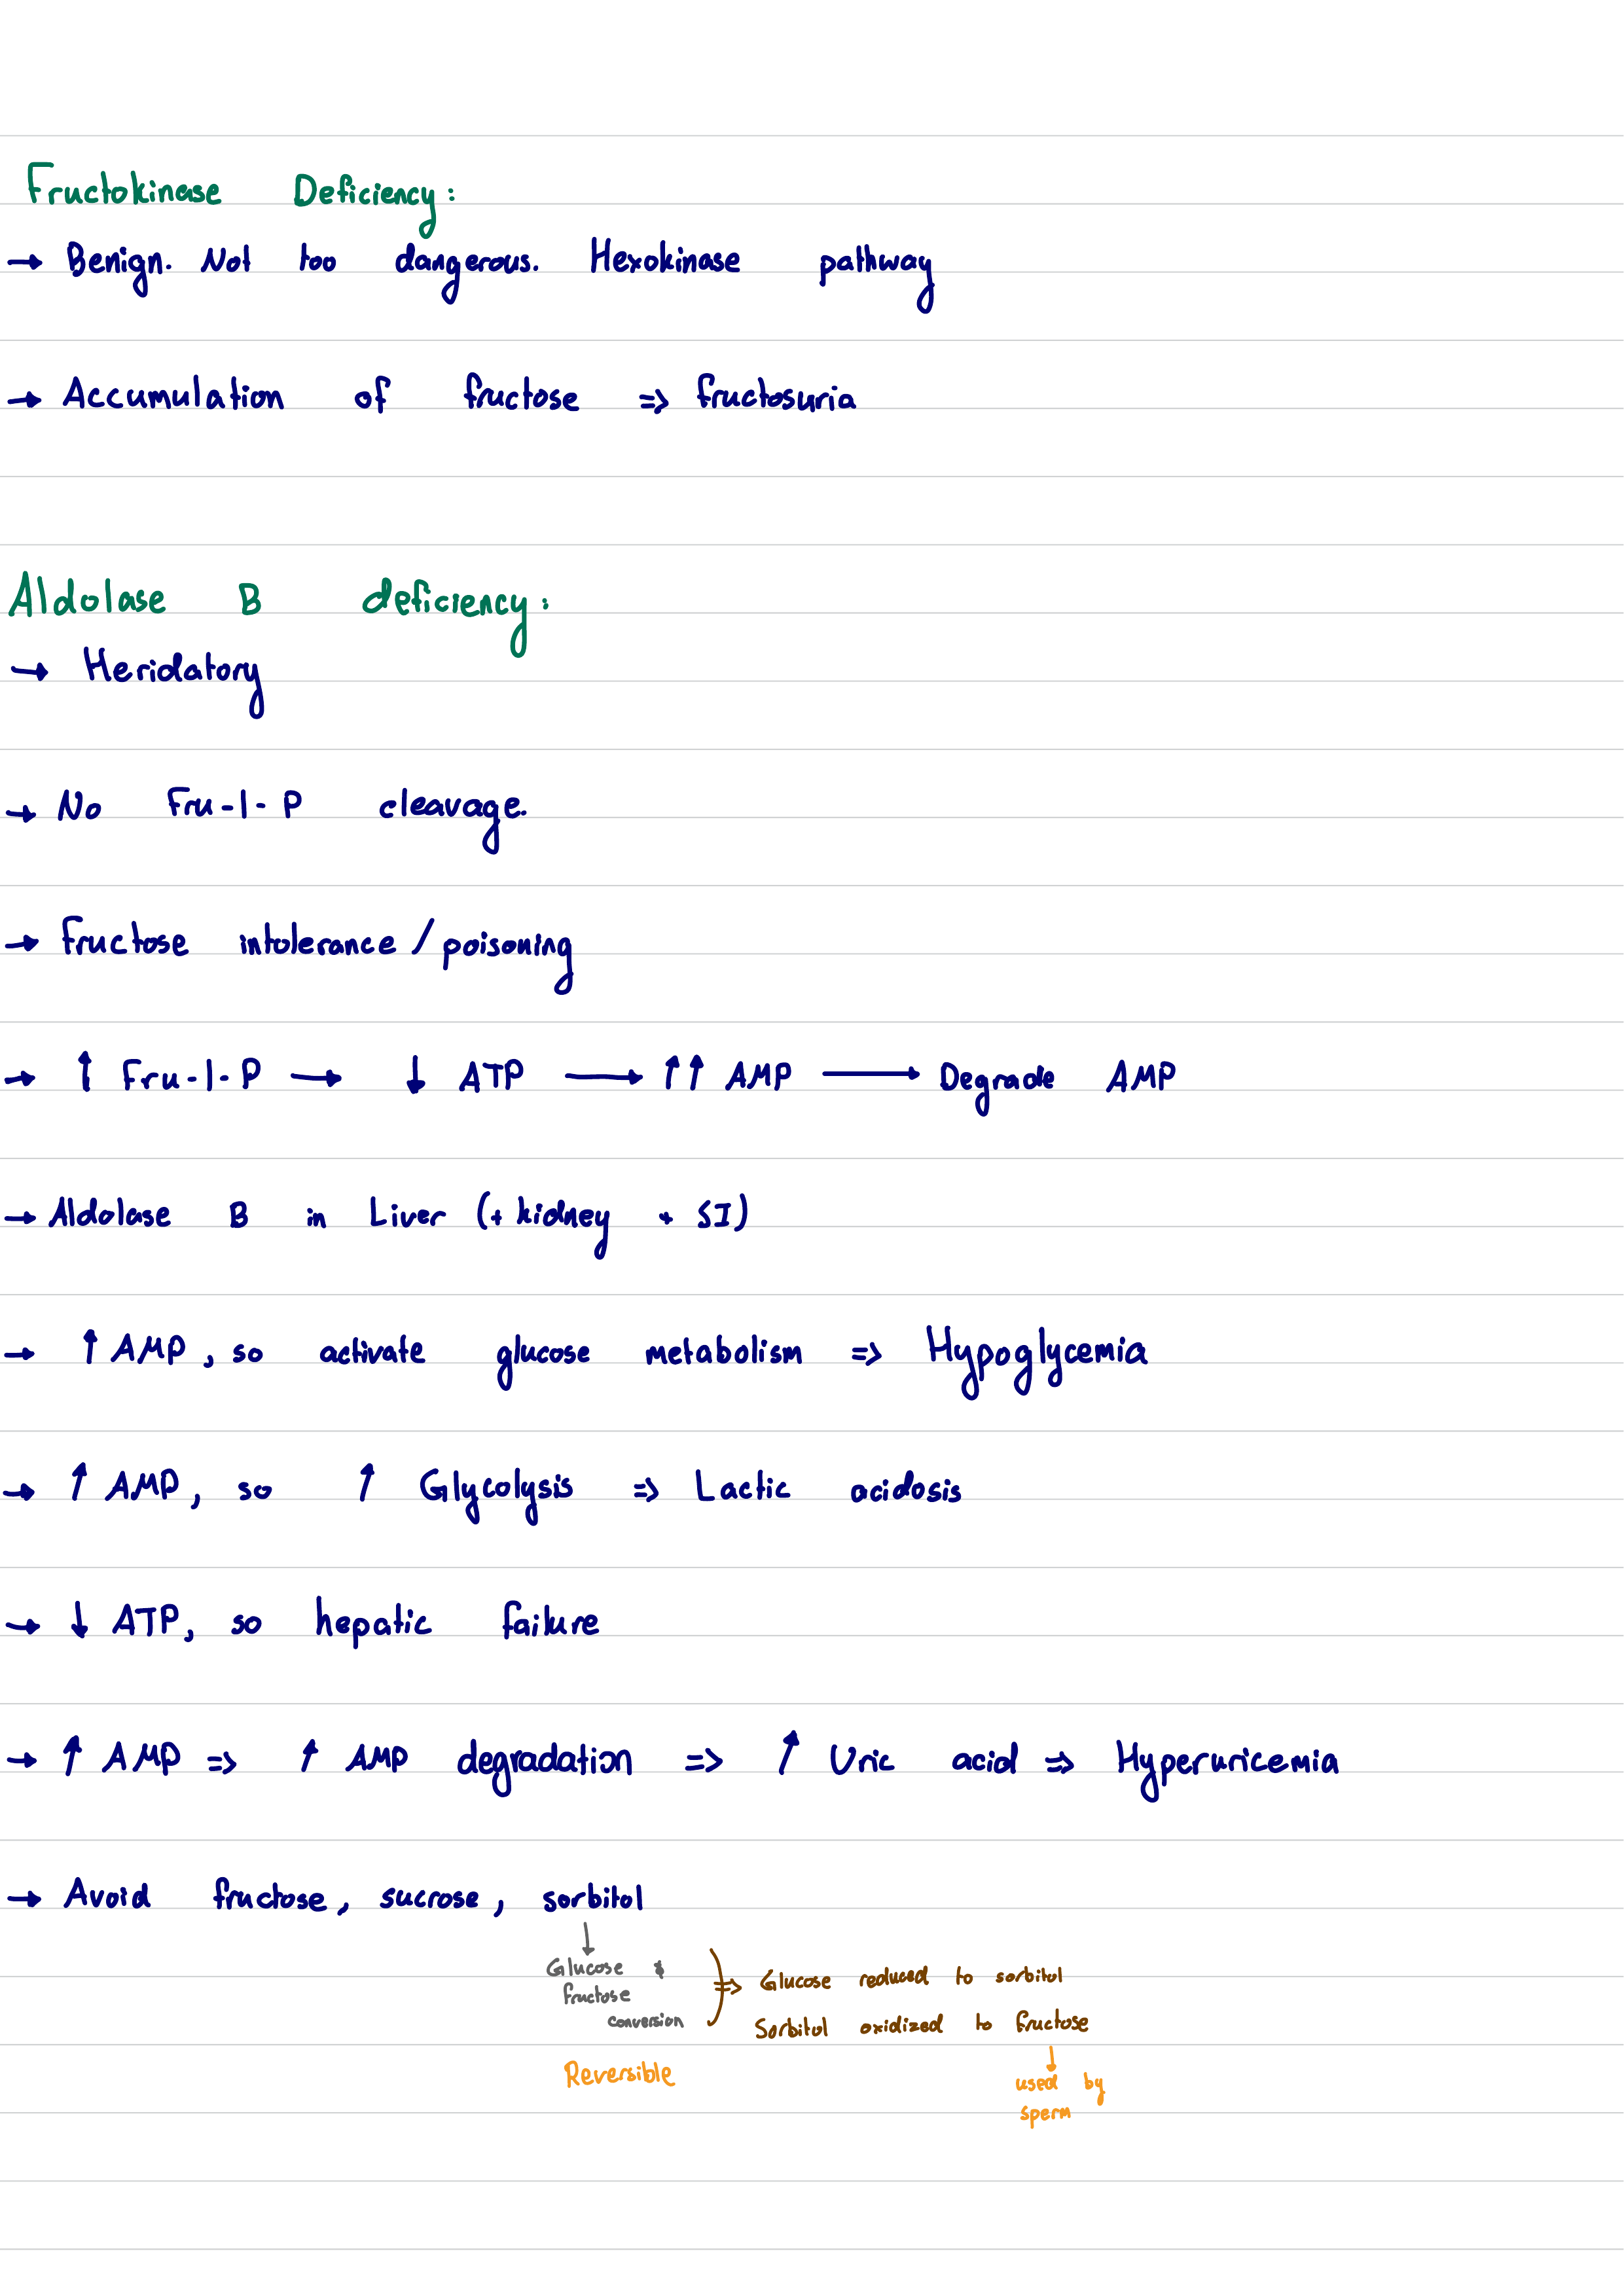 Fructokinase Deficiency:
→ Benign. Not too dangerous. Hexokinase pathway
→ Accumulation of fructose => fructosuria
Aldolase B deficiency:
→ Heridatory
→ No Fru-1-P cleavage.
→ Fructose intolerance/poisoning
→ ↑ Fru-1-P → ↓ ATP → ↑↑ AMP → Degrade AMP
→ Aldolase B in Liver (+ kidney + SI)
→ ↑ AMP, so activate glucose metabolism => Hypoglycemia
→ ↑ AMP, so ↑ Glycolysis => Lactic acidosis
→ ↓ ATP, so hepatic failure
→ ↑ AMP => ↑ AMP degradation => ↑ Uric acid => Hyperuricemia
→ Avoid fructose, sucrose, sorbitol
↓
Glucose &
fructose
conversion
) => Glucose reduced to sorbitol
Sorbitol oxidized to fructose
Reversible
↓
used by
sperm